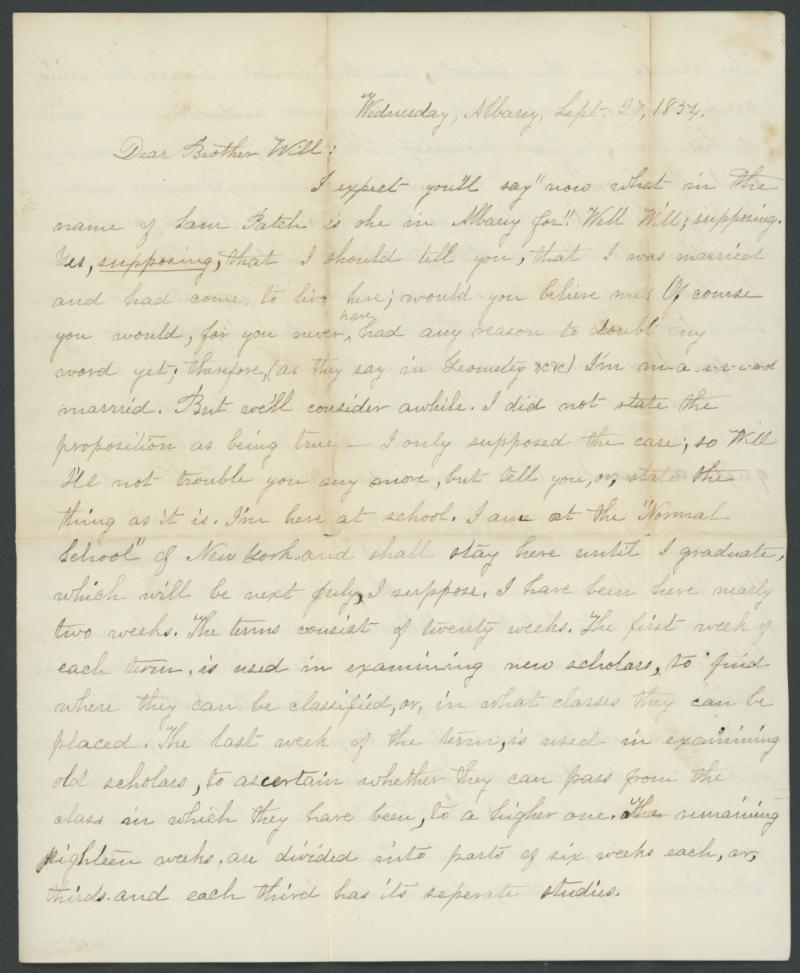 Wednesday, Albany, Sept. 27, 1854.
Dear Brother Will:
I expect you'll say "now what in the
name of Sam Patch is she in Albany for"! Well Will; supposing.
Yes, supposing, that I should tell you, that I was married
and had come to live here; would you believe me? Of course
you would, for you never have had any reason to doubt my
word yet; therefore, (as they say in Geometry &c &c) I'm m-a-r-r-i-e-d
married. But we'll consider awhile. I did not state the
proposition as being true — I only supposed the case; so Will
I'll not trouble you any more, but tell you, or, state the
thing as it is. I'm here at school. I am at the "Normal
School" of New York and shall stay here until I graduate,
which will be next July, I suppose. I have been here nearly
two weeks. The terms consist of twenty weeks. The first week of
each term, is used in examining new scholars, to find
where they can be classified, or, in what classes they can be
placed. The last week of the term, is used in examining
old scholars, to ascertain whether they can pass from the
class in which they have been, to a higher one. The remaining
eighteen weeks, are divided into parts of six weeks each, or,
thirds. and each third has its seperate studies.